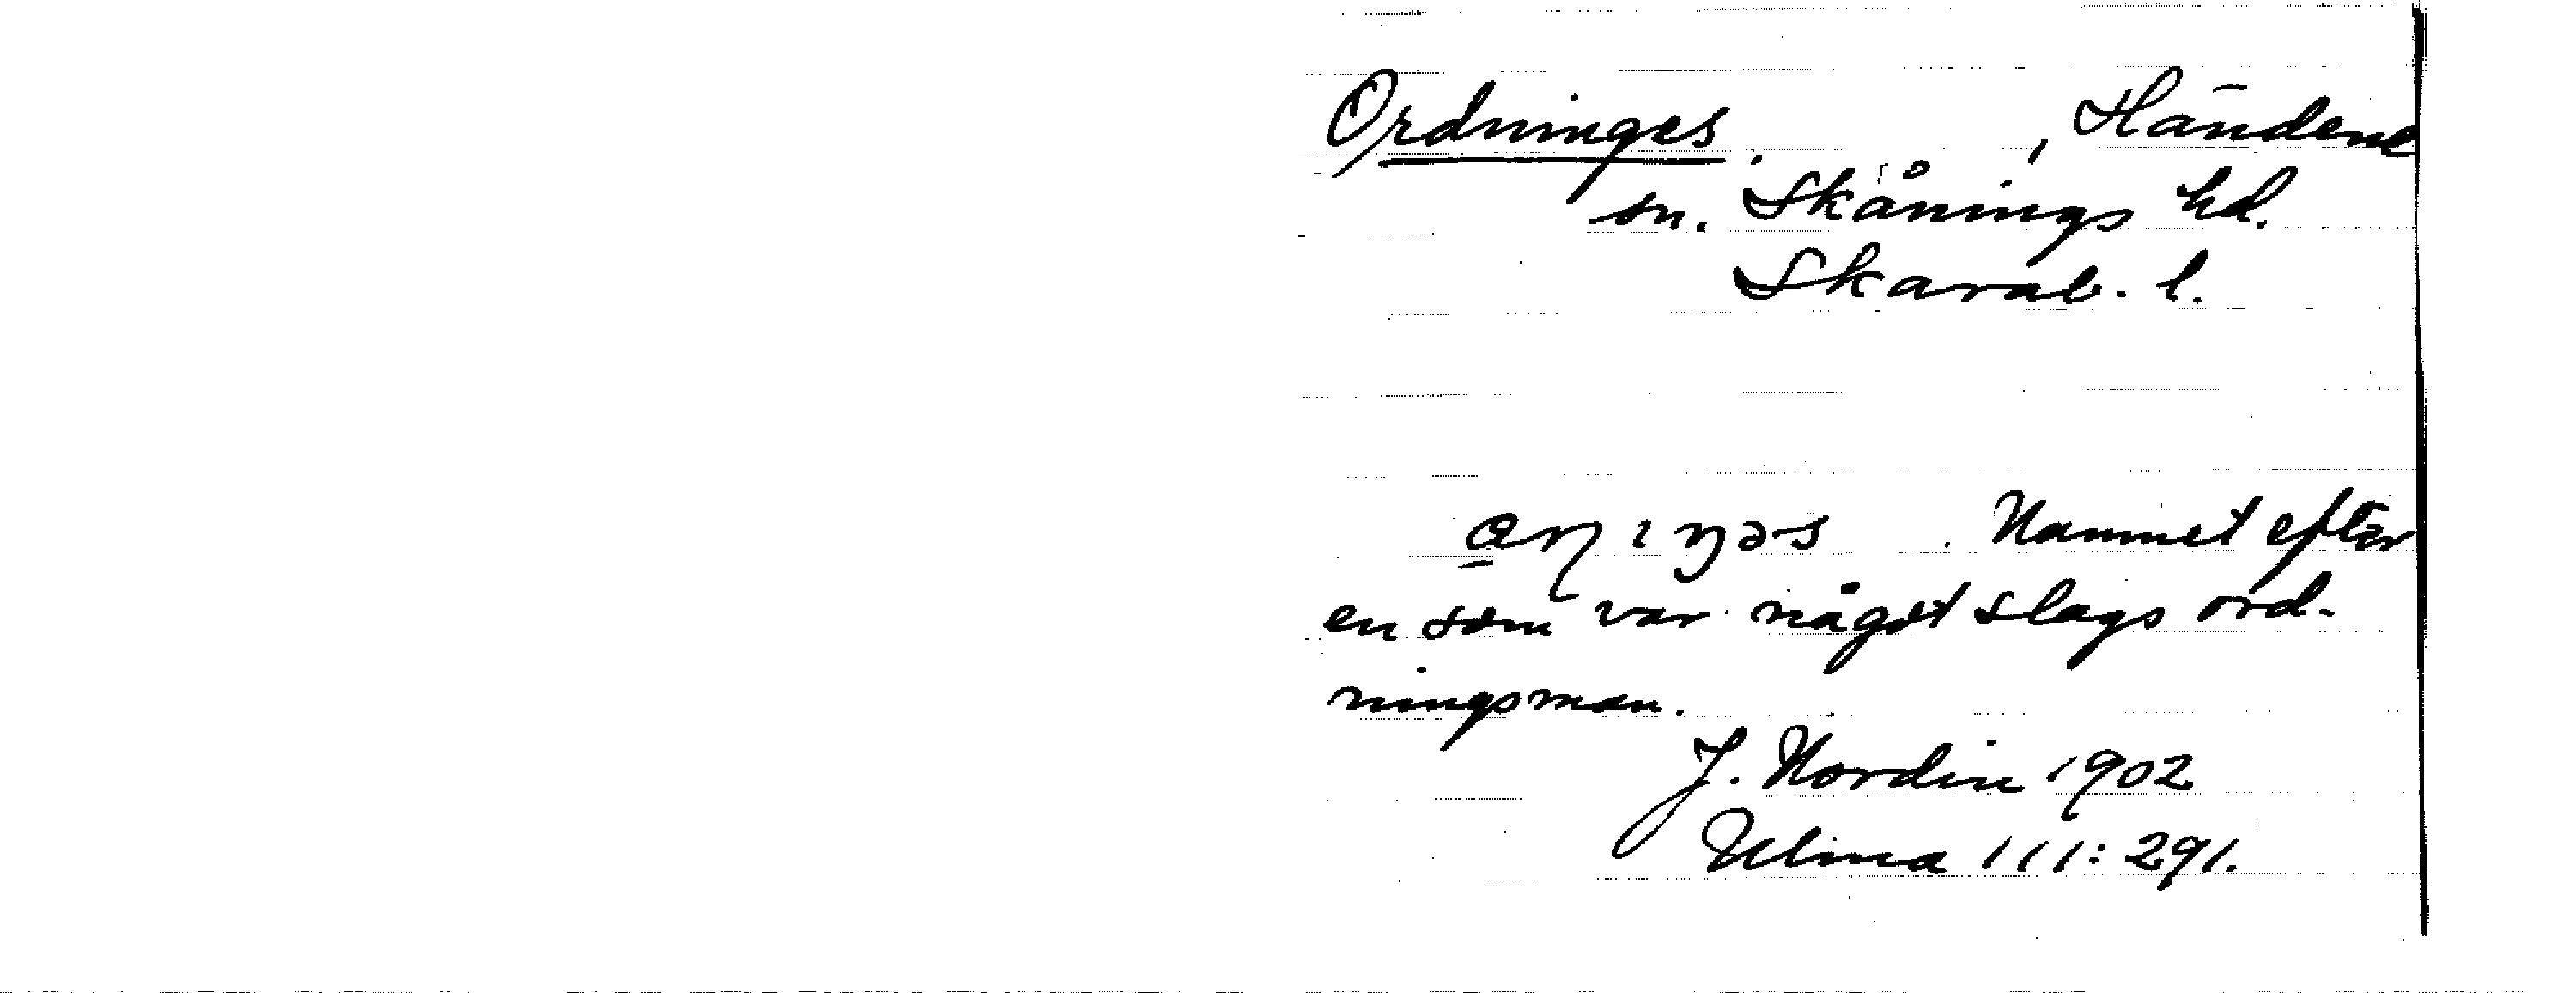 Ordninges. , Händene
sn. Skånings hd.
Skarab. l.
Namnet efter
en som var något slags ord-
ningsman.
J. Nordin 1902
Ulma 111:291.